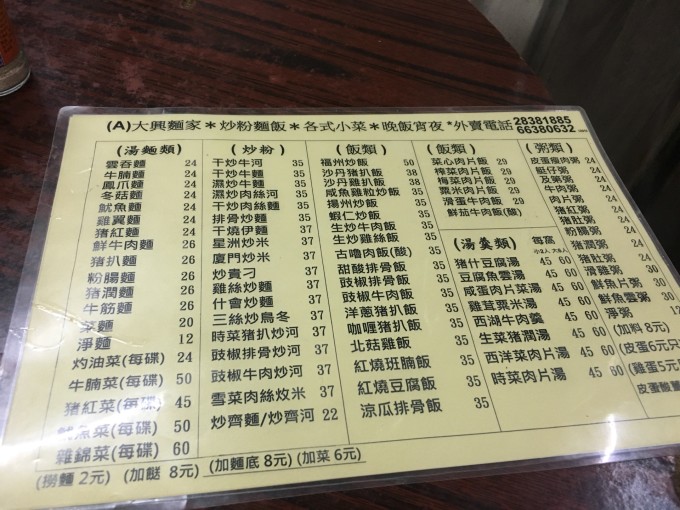 (A)大興麵家＊炒粉麵飯＊各式小菜＊晚飯宵夜*外賣電話 28381885
66380632
(湯麵類)
雲吞麵 24
牛腩麵 24
鳳爪麵 24
冬菇麵 24
魷魚麵 24
雞翼麵 24
豬紅麵 24
鮮牛肉麵 26
豬扒麵 26
粉腸麵 26
豬潤麵 26
牛筋麵 26
菜麵 20
淨麵 12
灼油菜(每碟) 24
牛腩菜(每碟) 50
豬紅菜(每碟) 45
魷魚菜(每碟) 50
雜錦菜(每碟) 60
(炒粉)
干炒牛河 35
干炒牛麵 35
濕炒牛河 35
濕炒肉絲河 35
干炒肉絲麵 35
排骨炒麵 35
干燒伊麵 35
星洲炒米 37
廈門炒米 37
炒貴刁 37
雞絲炒麵 37
什會炒麵 37
三絲炒烏冬 37
時菜豬扒炒河 37
豉椒排骨炒河 37
豉椒牛肉炒河 37
雪菜肉絲炆米 37
炒齋麵/炒齋河 22
(飯類)
福州炒飯 50
沙丹豬扒飯 38
沙丹雞扒飯 38
咸魚雞粒炒飯 35
揚州炒飯 35
蝦仁炒飯 35
生炒牛肉飯 35
生炒雞絲飯 35
古嚕肉飯(酸) 35
甜酸排骨飯 35
豉椒排骨飯 35
豉椒牛肉飯 35
洋蔥豬扒飯 35
咖喱豬扒飯 35
北菇雞飯 35
紅燒班腩飯 35
紅燒豆腐飯 35
涼瓜排骨飯 35
(飯類)
菜心肉片飯 29
榨菜肉片飯 29
梅菜肉片飯 29
粟米肉片飯 29
滑蛋牛肉飯 29
鮮茄牛肉飯(酸)
(湯羹類) 每窩
豬什豆腐湯 45 60
豆腐魚雲湯 45 60
咸蛋肉片菜湯 45 60
雞茸粟米湯 45 60
西湖牛肉羹 45 60
生菜豬潤湯 45 60
西洋菜肉片湯 45 60
時菜肉片湯 45 60
(粥類)
皮蛋瘦肉粥 24
艇仔粥 24
及第粥 24
牛肉粥 24
肉片粥 24
豬紅粥 24
豬肚粥 24
粉腸粥 24
豬潤粥 24
滑雞粥 30
鮮魚片粥 30
鮮魚雲粥 30
淨粥 12
(加料 8元)
(皮蛋 6元只
(雞蛋 5元
皮蛋酸薑
(撈麵 2元) (加餸 8元) (加麵底 8元) (加菜 6元)